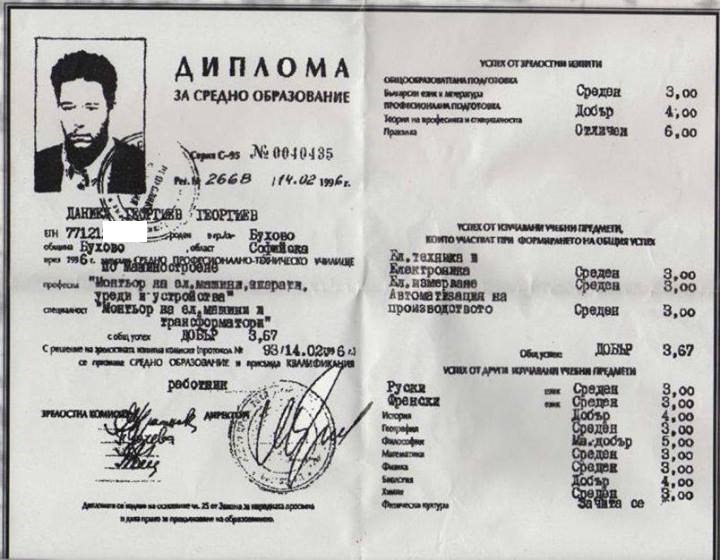 ДИПЛОМА
ЗА СРЕДНО ОБРАЗОВАНИЕ
Серия С-95 № 0040435
Рег. № 2668 / 14.02 1996 г.
ДАНИЕЛ ГЕОРГИЕВ ГЕОРГИЕВ
ЕГН 77121 роден в гр./с. Бухово
община Бухово , област Софийска
през 1996 г. СРЕДНО ПРОФЕСИОНАЛНО-ТЕХНИЧЕСКО УЧИЛИЩЕ
по машиностроене
професия "Монтьор на ел.машини,апарати,
уреди и устройства"
специалност "Монтьор на ел.машини и
трансформатори"
с общ успех ДОБЪР 3,67
С решение на зрелостната изпитна комисия (протокол № 93/14.02.1996 г.)
се признава СРЕДНО ОБРАЗОВАНИЕ и присъжда КВАЛИФИКАЦИЯ
работник
ЗРЕЛОСТНА КОМИСИЯ ДИРЕКТОР
Дипломата се издава на основание чл. 25 от Закона за народната просвета
и дава право за продължаване на образованието.
УСПЕХ ОТ ЗРЕЛОСТНИ ИЗПИТИ
ОБЩООБРАЗОВАТЕЛНА ПОДГОТОВКА
Български език и литература Среден 3,00
ПРОФЕСИОНАЛНА ПОДГОТОВКА
Теория на професията и специалността Добър 4,00
Практика Отличен 6,00
УСПЕХ ОТ ИЗУЧАВАНИ УЧЕБНИ ПРЕДМЕТИ,
КОИТО УЧАСТВАТ ПРИ ФОРМИРАНЕТО НА ОБЩИЯ УСПЕХ
Ел.техника и
Електроника Среден 3,00
Ел.измерване Среден 3,00
Автоматизация на
производството Среден 3,00
Общ успех: ДОБЪР 3,67
УСПЕХ ОТ ДРУГИ ИЗУЧАВАНИ УЧЕБНИ ПРЕДМЕТИ
Руски език Среден 3,00
Френски език Среден 3,00
История Добър 4,00
География Среден 3,00
Философия Мн.добър 5,00
Математика Среден 3,00
Физика Среден 3,00
Биология Добър 4,00
Химия Среден 3,00
Физическа култура Зачита се